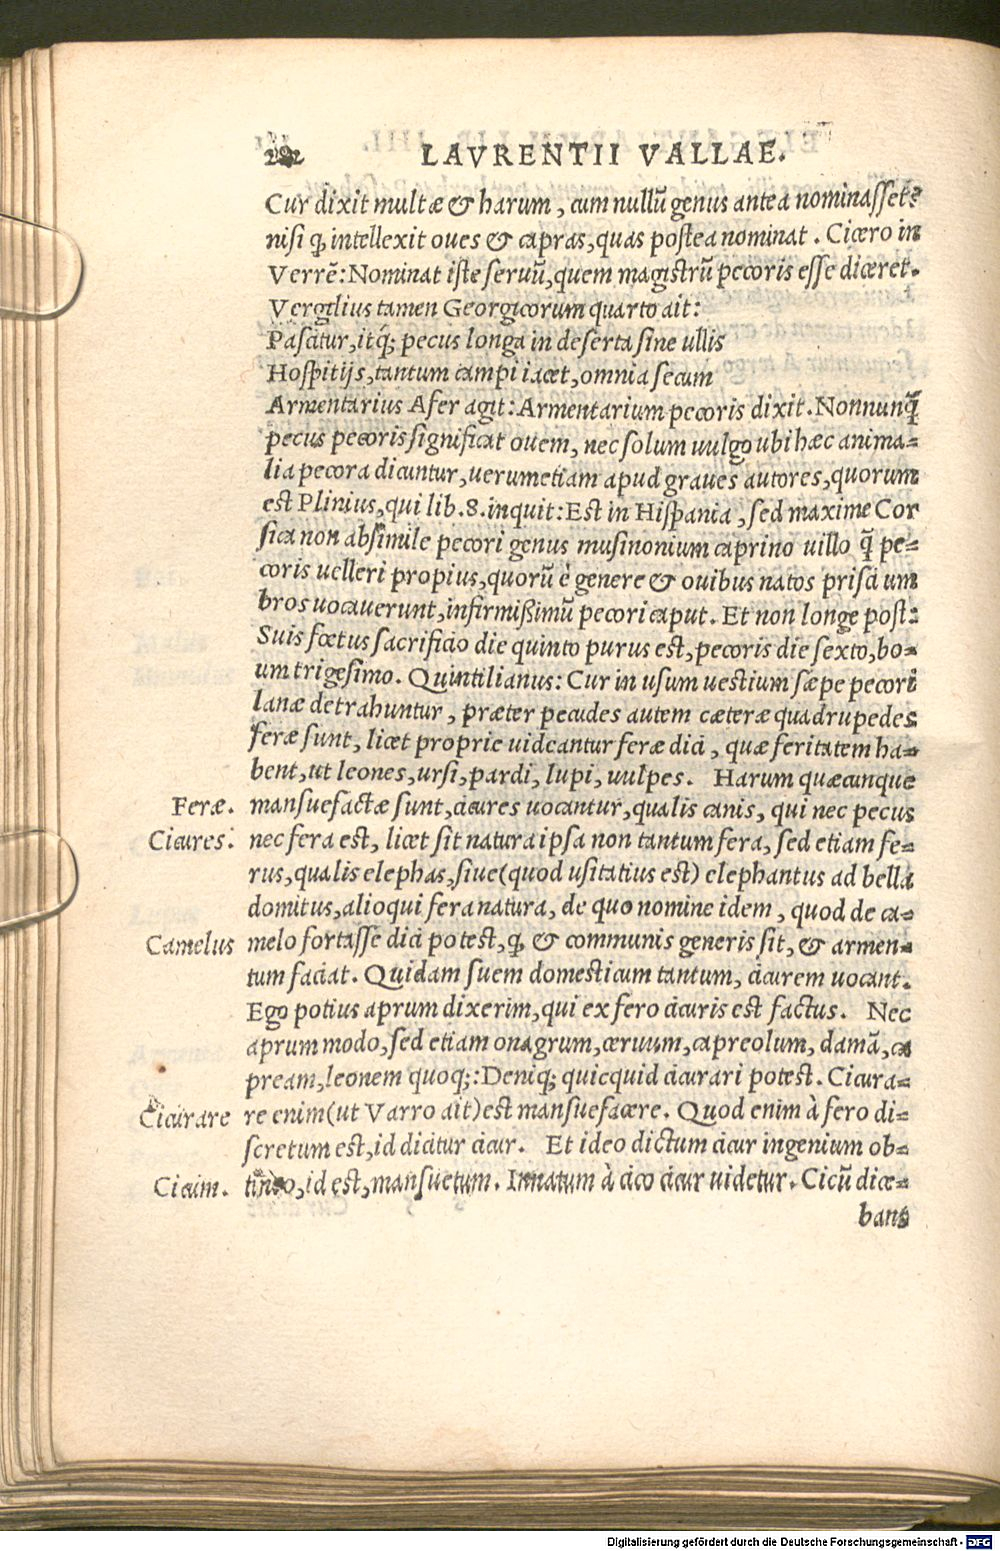 LAVRENTII VALLAE.
Cur dixit multæ & harum, cum nullũ genus antea nominasset?
nisi q̃, intellexit oues & capras, quas postea nominat. Cicero in
Verrẽ: Nominat iste seruũ, quem magistrũ pecoris esse diceret.
Vergilius tamen Georgicorum quarto ait:
Pascitur, itq́; pecus longa in deserta sine ullis
Hospitijs, tantum campi iacet, omnia secum
Armentarius Afer agit: Armentarium pecoris dixit. Nonnunq̃
pecus pecoris significat ouem, nec solum uulgo ubi hæc anima-
lia pecora dicuntur, uerumetiam apud graues autores, quorum
est Plinius, qui lib. 8. inquit: Est in Hispania, sed maxime Cor
sica non absimile pecori genus musinonium caprino uillo q̃ pe-
coris uelleri propius, quorũ è genere & ouibus natos prisci um
bros uocauerunt, infirmißimũ pecori caput. Et non longe post:
Suis fœtus sacrificio die quinto purus est, pecoris die sexto, bo-
um trigesimo. Quintilianus: Cur in usum uestium sæpe pecori
lanæ detrahuntur, præter pecudes autem cæteræ quadrupedes
feræ sunt, licet proprie uideantur feræ dici, quæ feritatem ha-
bent, ut leones, ursi, pardi, lupi, uulpes. Harum quæcunque
Feræ. mansuefactæ sunt, cicures uocantur, qualis canis, qui nec pecus
Cicures. nec fera est, licet sit natura ipsa non tantum fera, sed etiam fe-
rus, qualis elephas, siue (quod usitatius est) elephantus ad bella
domitus, alioqui fera natura, de quo nomine idem, quod de ca-
Camelus melo fortasse dici potest, q̃, & communis generis sit, & armen-
tum faciat. Quidam suem domesticum tantum, cicurem uocant.
Ego potius aprum dixerim, qui ex fero cicuris est factus. Nec
aprum modo, sed etiam onagrum, ceruum, capreolum, damã, ca
pream, leonem quoq;: Deniq; quicquid cicurari potest. Cicura-
Cicurare re enim (ut Varro ait) est mansuefacere. Quod enim à fero di-
scretum est, id dicitur cicur. Et ideo dictum cicur ingenium ob-
Cicum. tineo, id est, mansuetum. Innatum à cico cicur uidetur. Cicũ dice-
bant
Digitalisierung gefördert durch die Deutsche Forschungsgemeinschaft - DFG